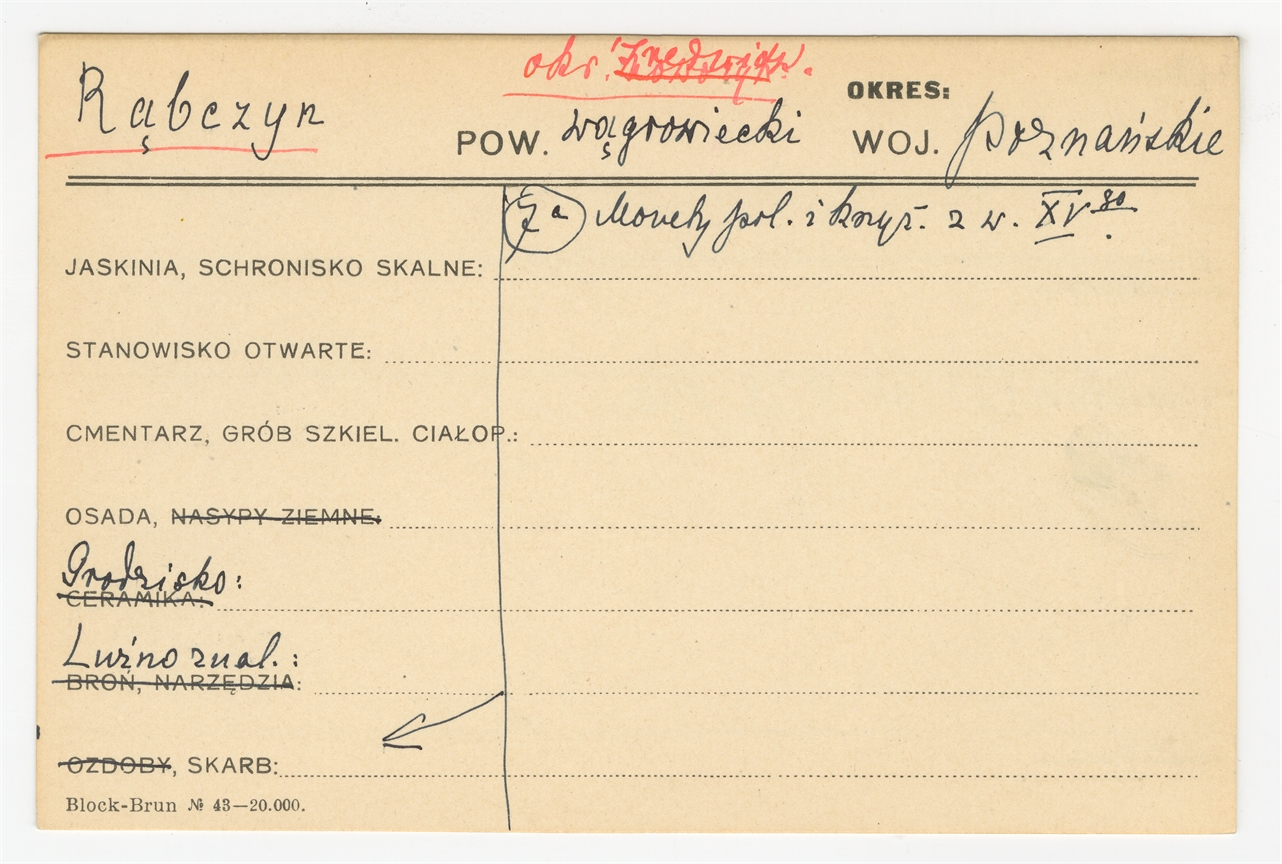 okr.
Rąbczyn
OKRES:
POW. wągrowiecki WOJ. Poznańskie
7a Monety pol. i krzyż. z w. XV go.
JASKINIA, SCHRONISKO SKALNE:
STANOWISKO OTWARTE:
CMENTARZ, GRÓB SZKIEL. CIAŁOP.:
OSADA, NASYPY ZIEMNE:
Grodzisko:
CERAMIKA:
Luźno znal.:
BROŃ, NARZĘDZIA:
OZDOBY, SKARB:
Block-Brun № 43—20.000.